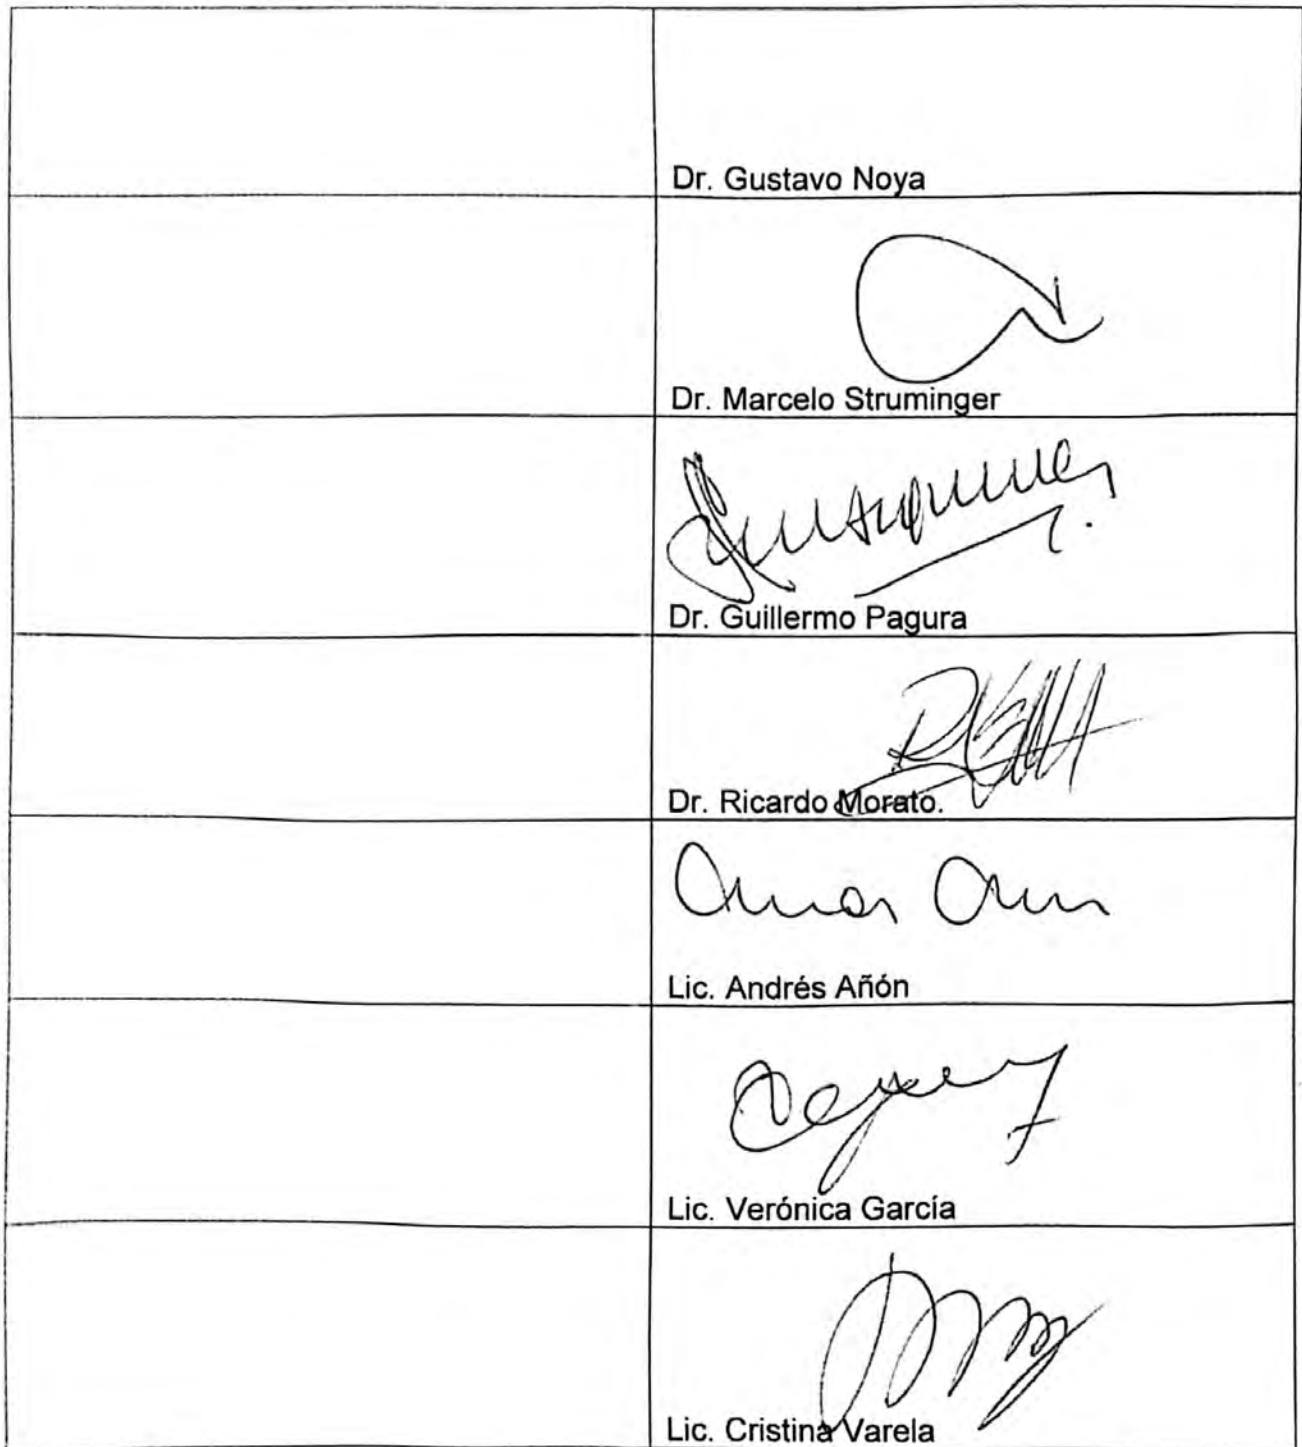 Dr. Gustavo Noya
Dr. Marcelo Struminger
Dr. Guillermo Pagura
Dr. Ricardo Morato.
Lic. Andrés Añón
Lic. Verónica García
Lic. Cristina Varela